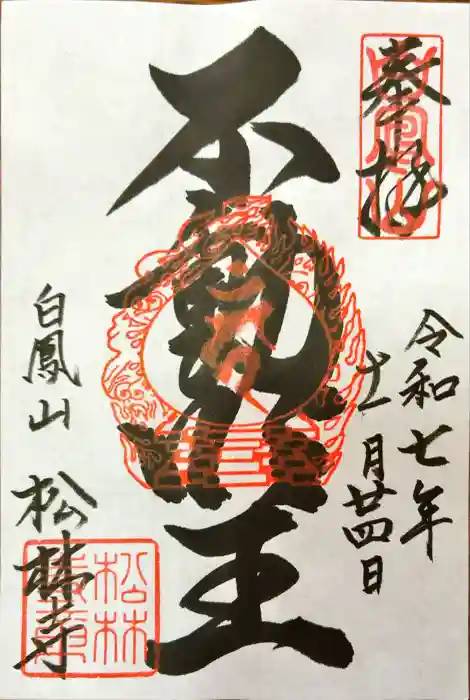 奉拝
令和七年
十一月廿四日
不動王
白鳳山 松林寺
松林